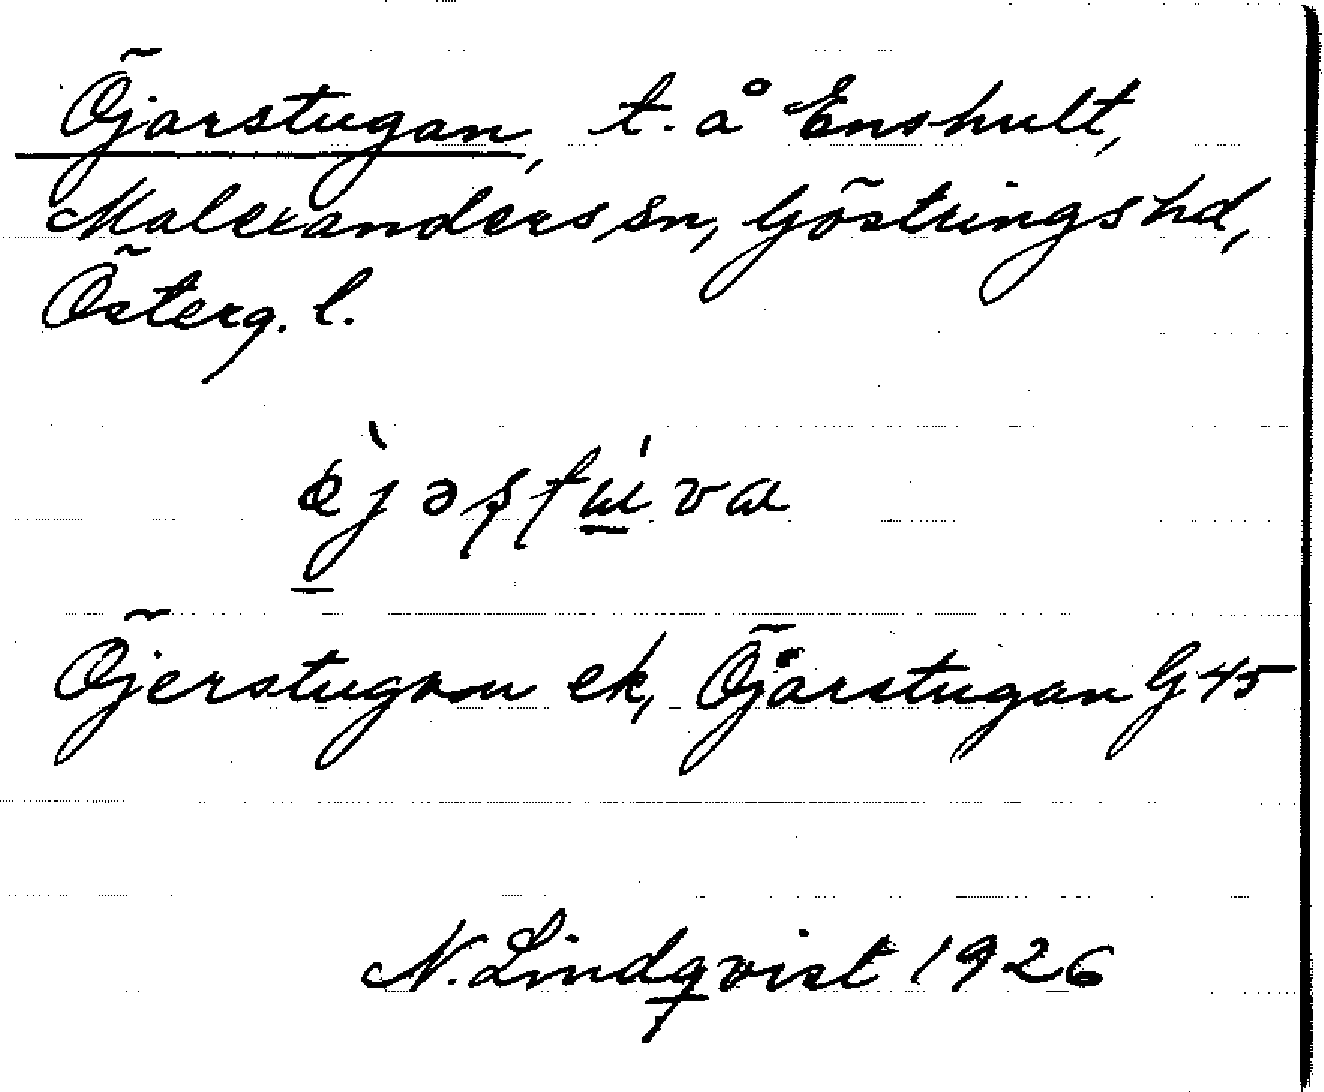 Öjarstugan, t. å Enshult,
Malexanders sn, Göstrings hd,
Österg. l.
Öjerstugan ek, Öjarstugan G 45
N. Lindqvist 1926